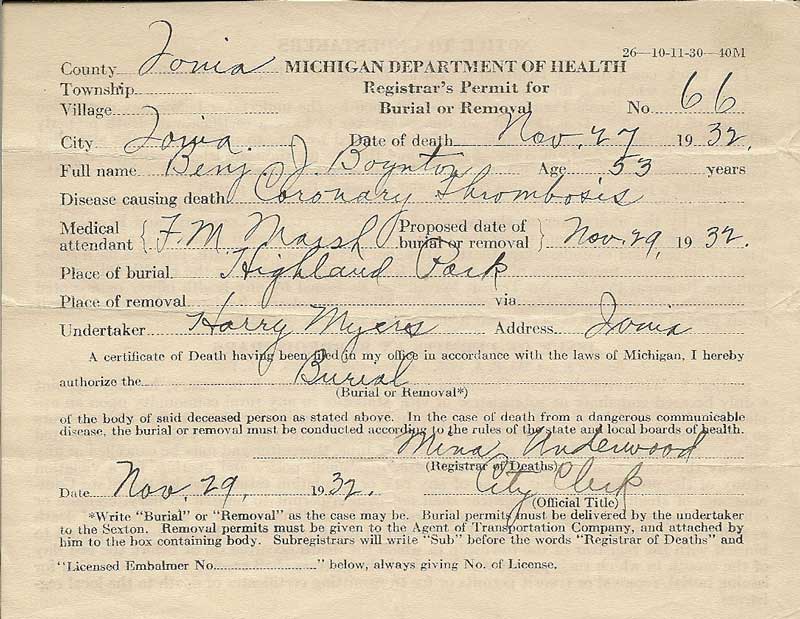 26—10-11-30—40M
County Ionia MICHIGAN DEPARTMENT OF HEALTH
Township Registrar's Permit for
Village Burial or Removal No. 66
City Ionia. Date of death Nov. 27 1932.
Full name Benj J. Boynton Age 53 years
Disease causing death Coronary Thrombosis
Medical attendant { F. M. Marsh Proposed date of burial or removal } Nov. 29, 1932.
Place of burial Highland Park
Place of removal via
Undertaker Harry Myers Address Ionia
A certificate of Death having been filed in my office in accordance with the laws of Michigan, I hereby
authorize the Burial
(Burial or Removal*)
of the body of said deceased person as stated above. In the case of death from a dangerous communicable
disease, the burial or removal must be conducted according to the rules of the state and local boards of health.
Mina Underwood
(Registrar of Deaths)
Date Nov. 29, 1932. City Clerk
(Official Title)
*Write "Burial" or "Removal" as the case may be. Burial permits must be delivered by the undertaker
to the Sexton. Removal permits must be given to the Agent of Transportation Company, and attached by
him to the box containing body. Subregistrars will write "Sub" before the words "Registrar of Deaths" and
"Licensed Embalmer No. " below, always giving No. of License.